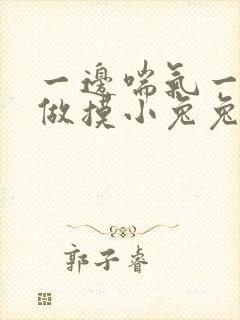 一邊喘氣一
做摸小兔兔
郭子睿